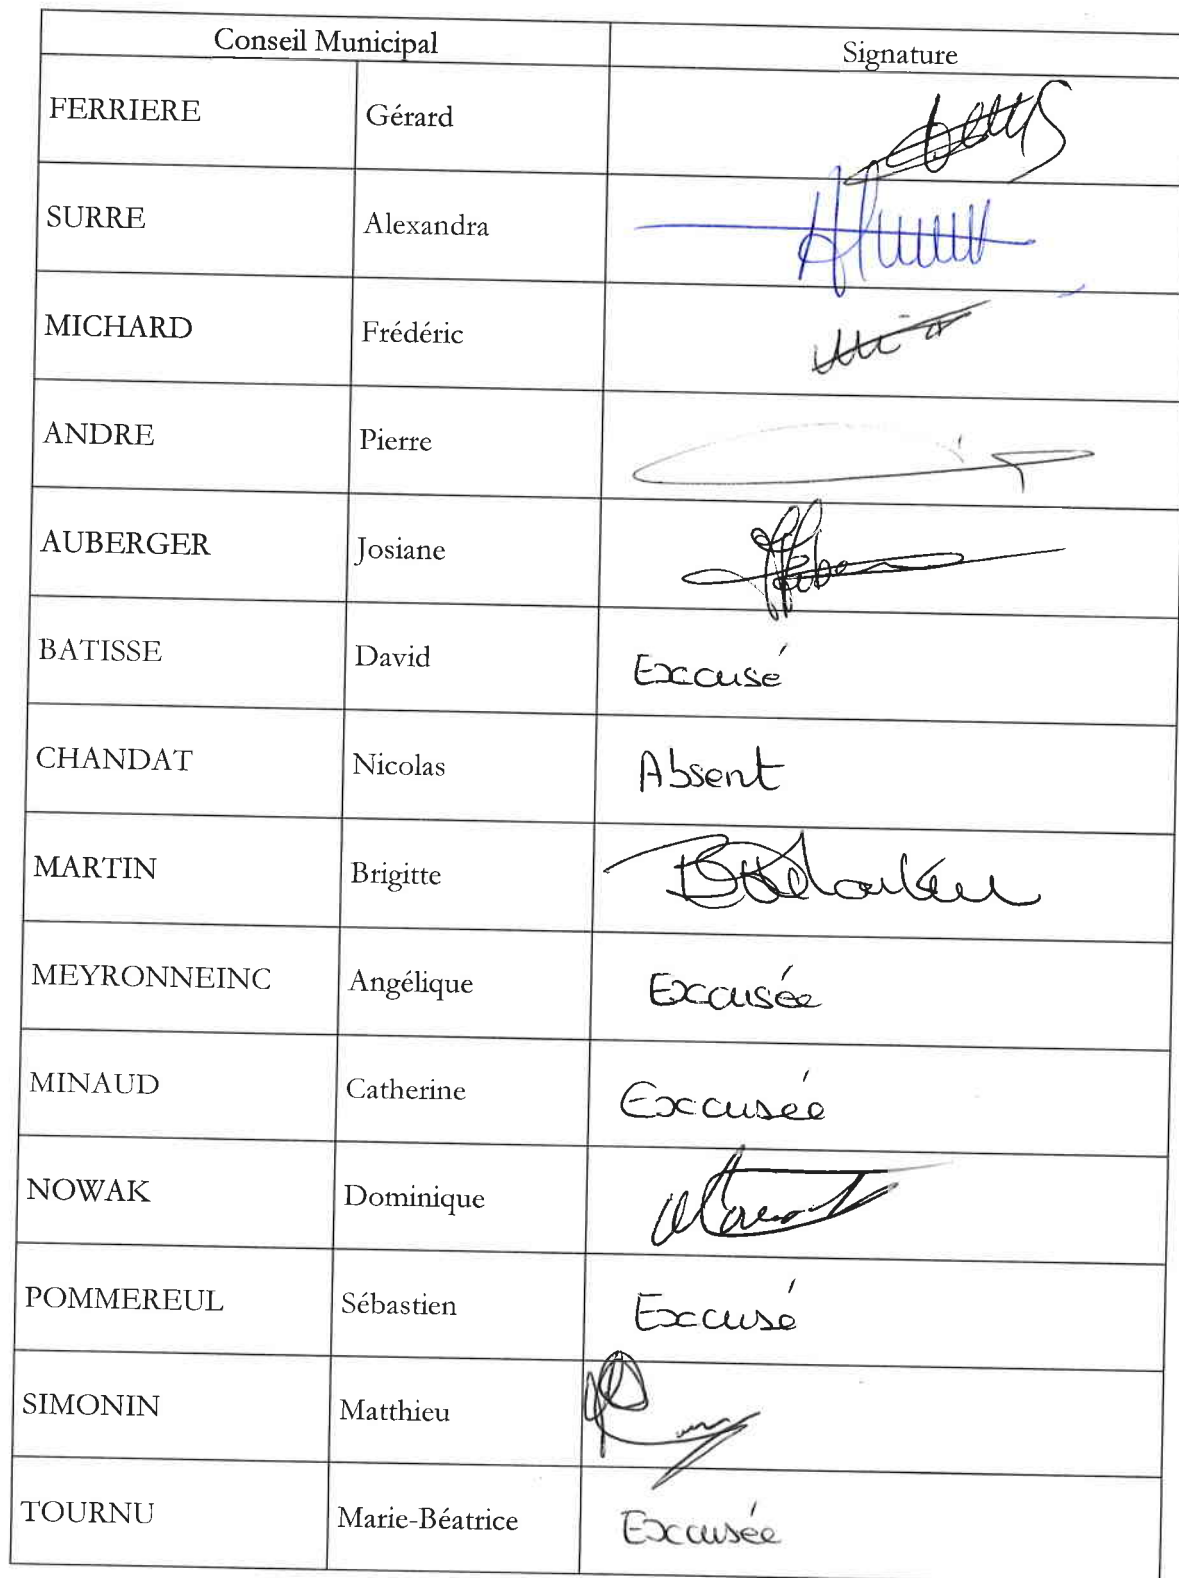 Conseil Municipal Signature
FERRIERE Gérard
SURRE Alexandra
MICHARD Frédéric
ANDRE Pierre
AUBERGER Josiane
BATISSE David Excusé
CHANDAT Nicolas Absent
MARTIN Brigitte
MEYRONNEINC Angélique Excusée
MINAUD Catherine Excusée
NOWAK Dominique
POMMEREUL Sébastien Excusé
SIMONIN Matthieu
TOURNU Marie-Béatrice Excusée